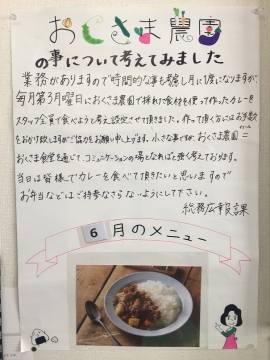 おくさま農園
の事について考えてみました
業務がありますので時間的な事も考慮し月に1度になりますが、
毎月第3月曜日におくさま農園で採れた食材を使って作ったカレーを
スタッフ全員で食べようと考え設定させて頂きました。作って頂く方にはお手数
をおかけ致しますがご協力をお願い申し上げます。小さな事ですが、おくさま農園=
おくさま食堂を通じて、コミュニケーションの場となればと強く考えております。
当日は皆様でカレーを食べて頂きたいと思いますので
お弁当などはご持参なさらないようにして下さい。
総務広報課
6月のメニュー